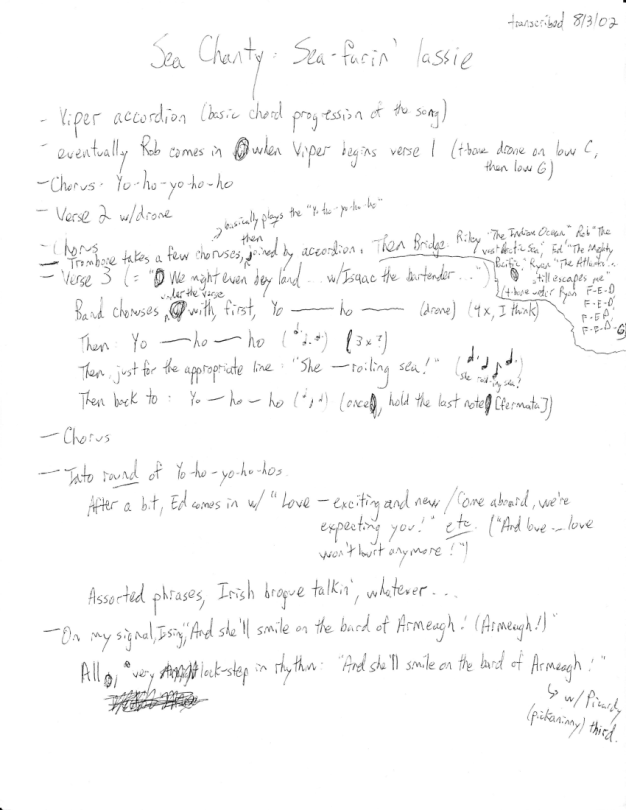 transcribed 8/3/02
Sea Chanty: Sea-farin' lassie
- Viper accordion (basic chord progression of the song)
- eventually Rob comes in when Viper begins verse 1 (t-bone drone on low C,
then low G)
- Chorus: Yo-ho-yo-ho-ho
- Verse 2 w/drone
- Chorus
basically plays the "Yo-ho-yo-ho-ho"
then
- Trombone takes a few choruses, joined by accordion. Then Bridge. Riley "The Indian Ocean" Rob "The
vast Arctic Sea", Ed "The Mighty
Pacific" Ryan "The Atlantic...
still escapes me"
(t-bone under Ryan F-E-D
F-E-D
F-E-D
F-E-D-G)
- Verse 3 (= "We might even dry land... w/Isaac the bartender...")
under the verse
Band choruses with, first, Yo — ho — (drone) (4x, I think)
Then: Yo — ho — ho (3x?)
Then, just for the appropriate line: "She — roiling sea!"
She roiling sea!
Then back to: Yo — ho — ho (once, hold the last note [fermata])
- Chorus
- Into round of Yo-ho-yo-ho-hos.
After a bit, Ed comes in w/ "Love — exciting and new / Come aboard, we're
expecting you!" etc. ("And love... love
won't hurt anymore!")
Assorted phrases, Irish brogue talkin', whatever...
- On my signal, I sing, "And she'll smile on the bard of Armeagh! (Armeagh!)"
All, very lock-step in rhythm: "And she'll smile on the bard of Armeagh!"
↳ w/ Picardy
(pickaninny) third.